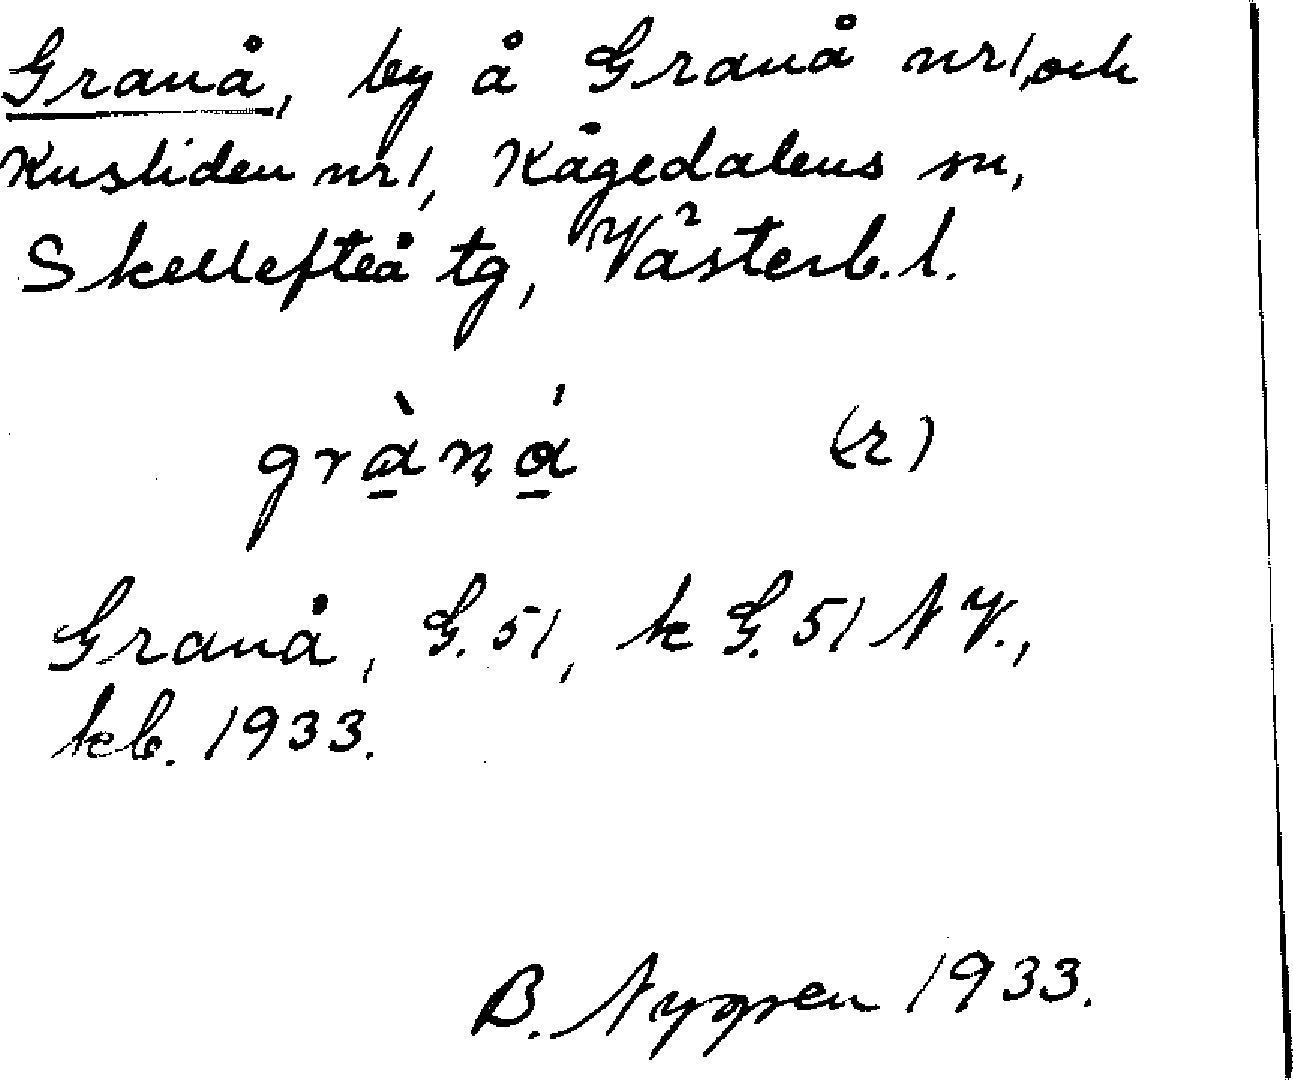 Granå, by å Granå nr 1, och
Kusliden nr 1, Kågedalens sn,
Skellefteå tg, Västerb. l.
gràná (r)
Granå, G. 51, k G. 51 N V.,
kb. 1933.
B. Nygren 1933.